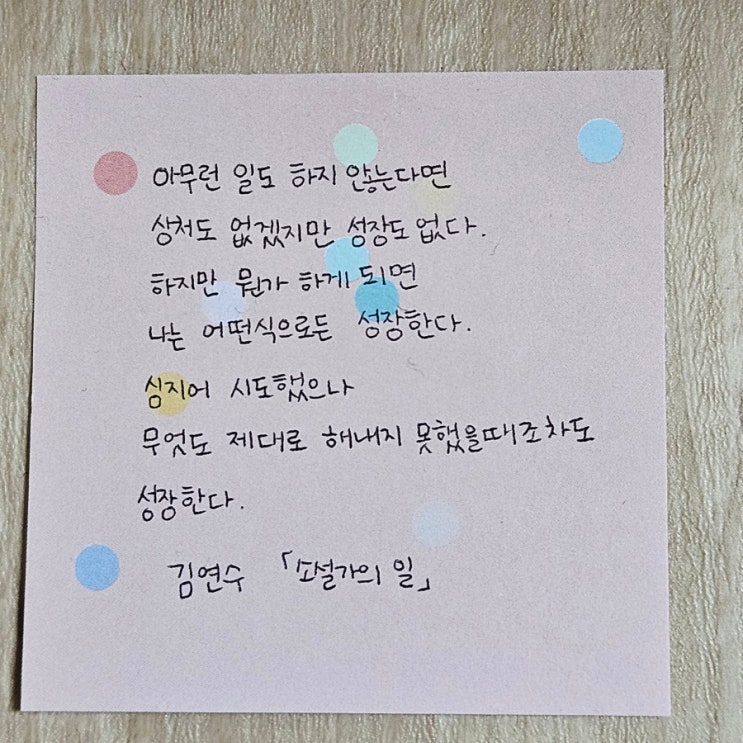 아무런 일도 하지 않는다면
상처도 없겠지만 성장도 없다.
하지만 뭔가 하게 되면
나는 어떤식으로든 성장한다.
심지어 시도했으나
무엇도 제대로 해내지 못했을때조차도
성장한다.
김연수 「소설가의 일」